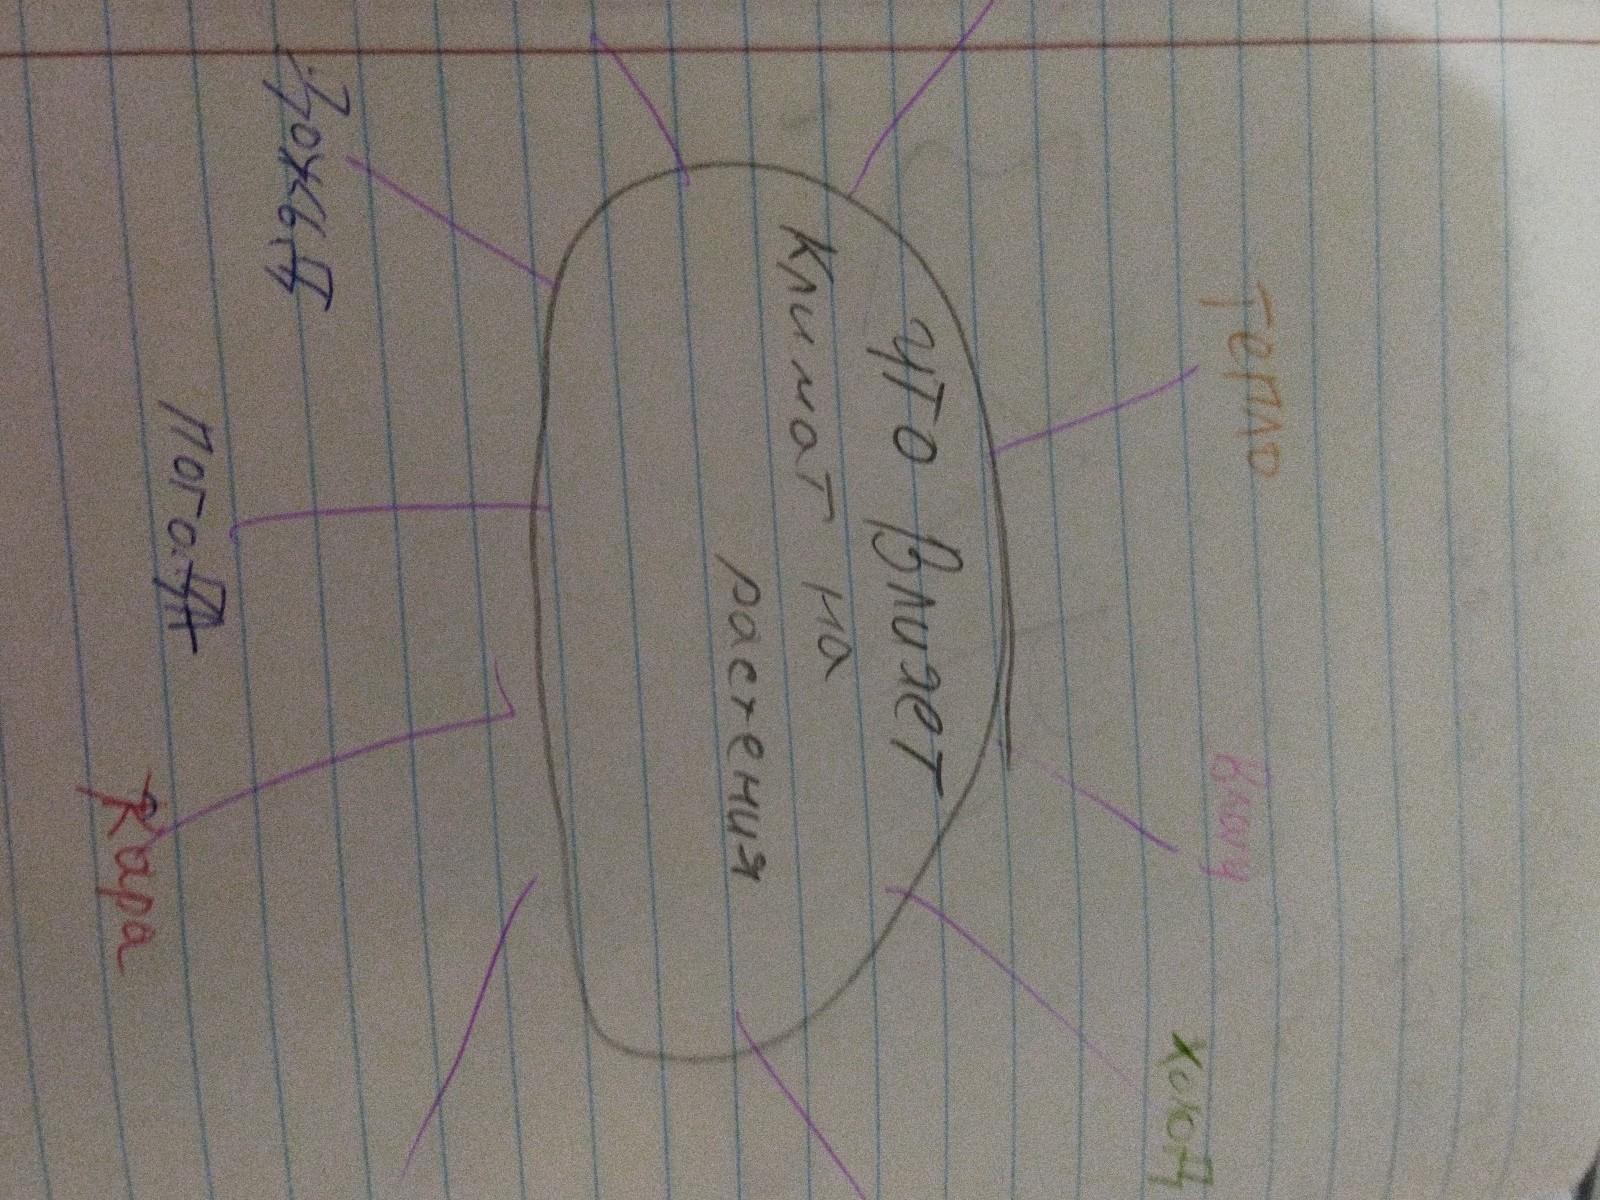 Тепло
Влагу
Холод
Что влияет
Климат на
растения
Дожьд
Погода
Жара